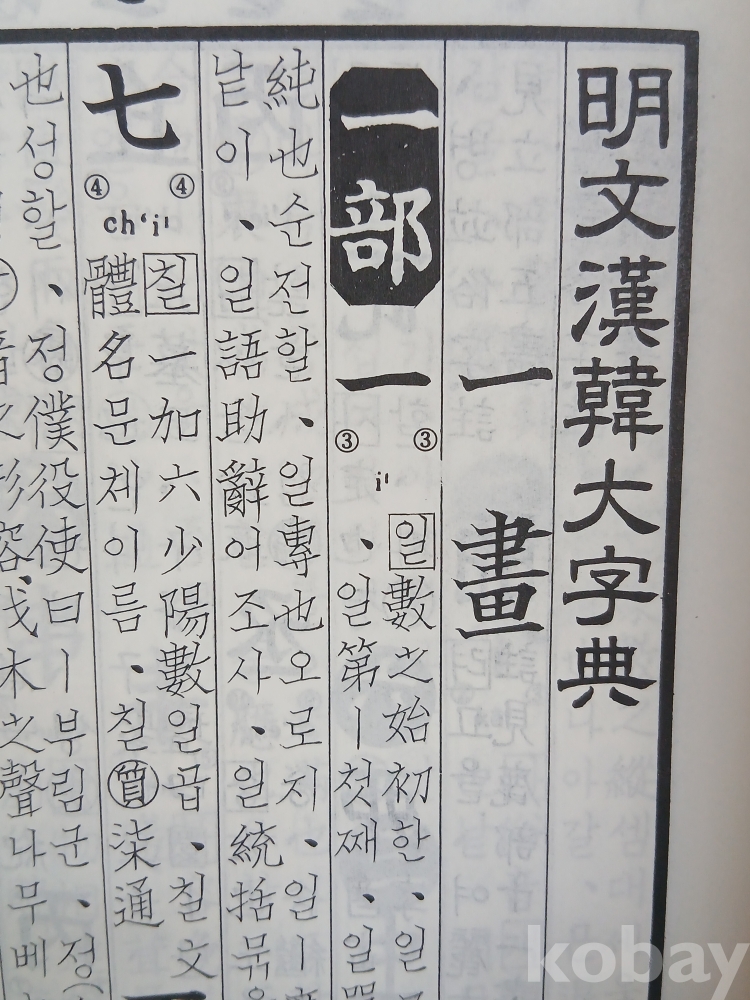 明文漢韓大字典
一畫
一部
一
③ ③
i¹
일數之始初한、일
、일第ㅣ첫째、일
純也순전할、일專也오로지、일ㅣ
낱이、일語助辭어조사、일統括묶
七
④ ④
ch‘i¹
칠一加六少陽數일곱、칠文
體名문체이름、칠質柒通
也성할、정僕役使曰ㅣ부림군、정(
之形容、伐木之聲나무베
kobay